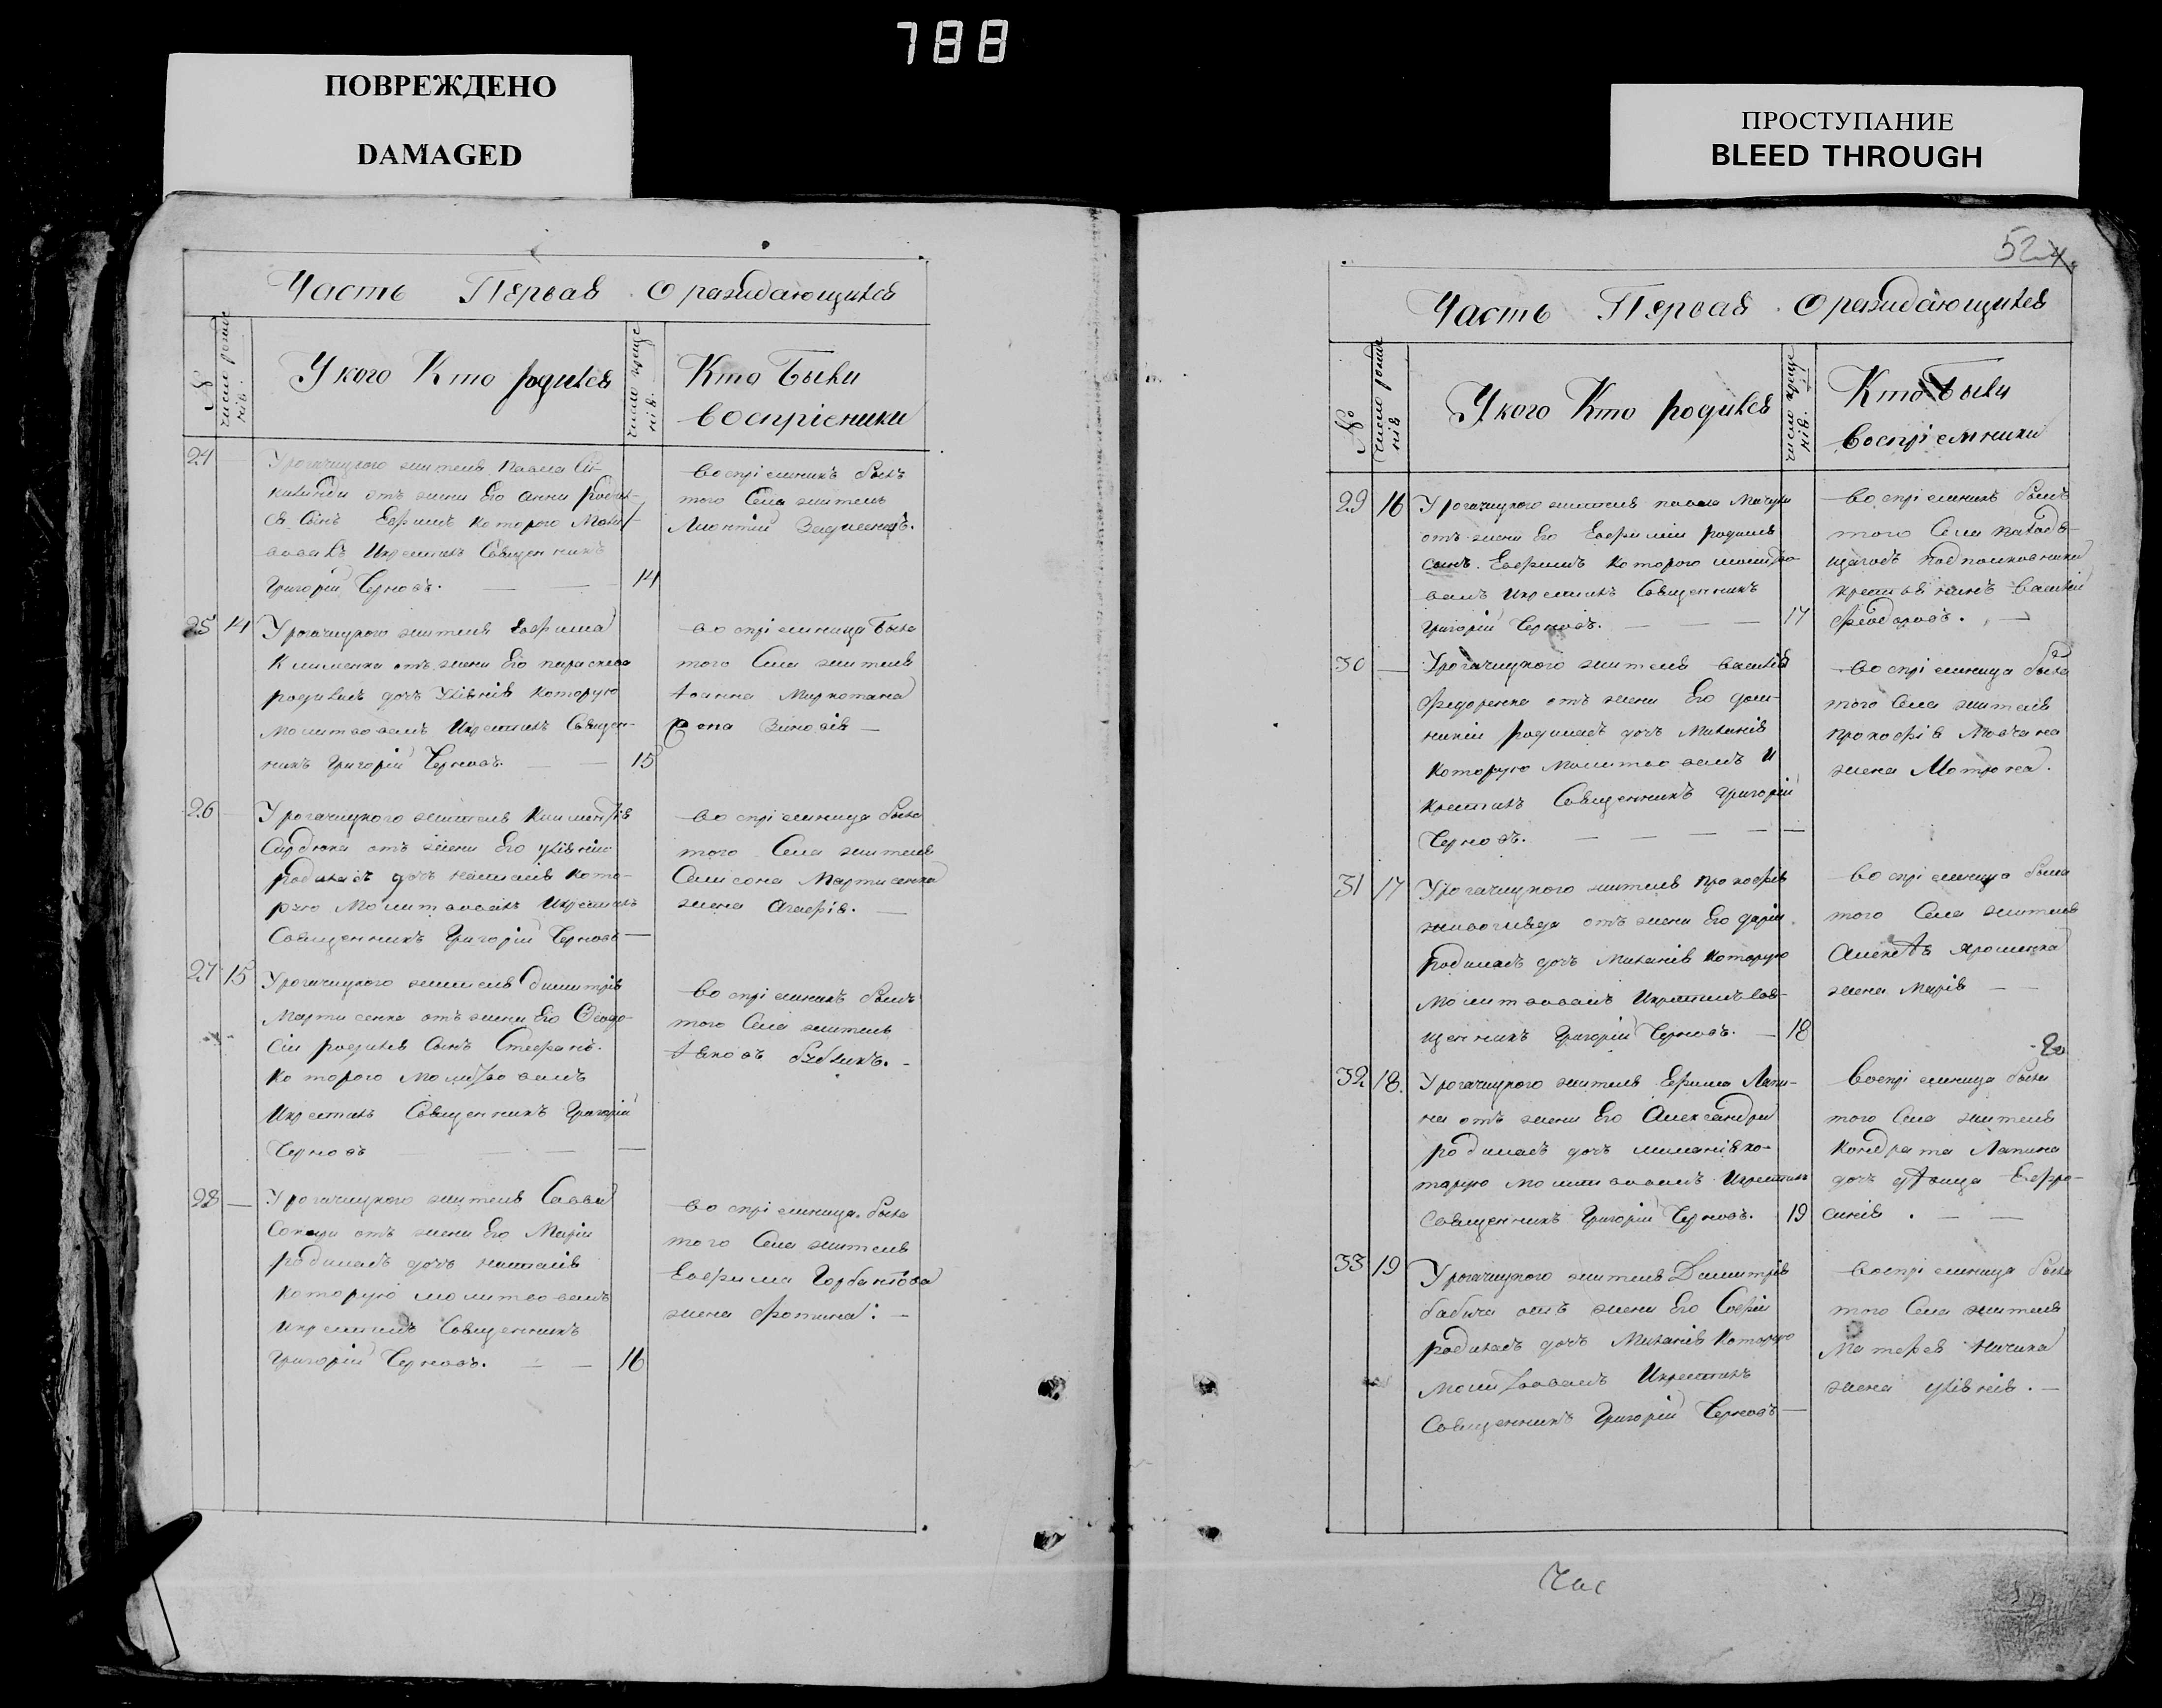 788
ПОВРЕЖДЕНО
DAMAGED
ПРОСТУПАНИЕ
BLEED THROUGH
Часть Первая о раждающихся
№
число рожде
нія.
У кого Кто родился
число креще
нія.
Кто были
воспріемники
24
У рогачицкого жителя Павла
отъ жены Его Анны родил-
ся сынъ Ефимъ которого Молит-
вовалъ Икрестилъ Священникъ
Григорій Черновъ.
14
воспріемникъ былъ
того Села житель
Леонтій
25 14
У рогачицкого жителя Ефима
Клименка отъ жены Его параскевы
родилась дочь Уліянія которую
молитвовалъ Икрестилъ Священ-
никъ Григорій Черновъ.
15
воспріемница была
того Села жителя
Іоанна
жена Зиновія
26
У рогачицкого жителя Климентія
Сердюка отъ жены Его уліяніи
родилась дочь наталія кото-
рую Молитвовалъ Икрестилъ
Священникъ Григорій Черновъ
воспріемница была
того Села жителя
Самсона Мартисенка
жена Агафія.
27 15
У рогачицкого жителя димитрія
Мартисенка отъ жены Его Феодо-
сіи родился Сынъ Стефанъ.
которого молитвовалъ
Икрестилъ Священникъ Григорій
Черновъ
воспріемникъ былъ
того Села житель
Іяковъ бубликъ.
28
У рогачицкого жителя Саввы
отъ жены Его Маріи
родилась дочь наталія
которую молитвовалъ
Икрестилъ Священникъ
Григорій Черновъ.
16
воспріемница была
того Села жителя
Евфима Горбатова
жена Фотина.
52
Часть Первая о раждающихся
№
число рожде
нія
У кого Кто родился
число креще
нія.
Кто были
воспріемники
29 16
У рогачицкого жителя павла
отъ жены Его Евфиміи родился
сынъ Евфимъ Которого молитво
валъ Икрестилъ Священникъ
Григорій Черновъ.
17
воспріемникъ былъ
того Села
подполковника
крестьянинъ василій
Феодоровъ.
30
У рогачицкого жителя василія
Федоренка отъ жены Его дом-
никіи родилась дочь Миланія
Которую Молитвовалъ И
крестилъ Священникъ Григорій
Черновъ.
воспріемница была
того Села жителя
прокофія Мовчана
жена Мотрона.
31 17
У рогачицкого жителя прокофія
отъ жены Его даріи
родилась дочь Миланія которую
Молитвовалъ Икрестилъ Свя-
щенникъ Григорій Черновъ.
18
воспріемница была
того Села жителя
Алексѣя Ярошенка
жена Марія
32 18.
У рогачицкого жителя Ефима Лапи-
на отъ жены Его Александры
родилась дочь миланія ко-
торую молитвовалъ Икрестилъ
священникъ Григорій Черновъ.
19
воспріемница была
того Села жителя
Кондрата Лапина
дочь дѣвица Евфро-
синія.
33 19
У рогачицкого жителя Димитрія
бабича отъ жены Его Софіи
родилась дочь Миланія Которую
Молитвовалъ Икрестилъ
Священникъ Григорій Черновъ
воспріемница была
того Села жителя
Матфея
жена уліянія.
Час